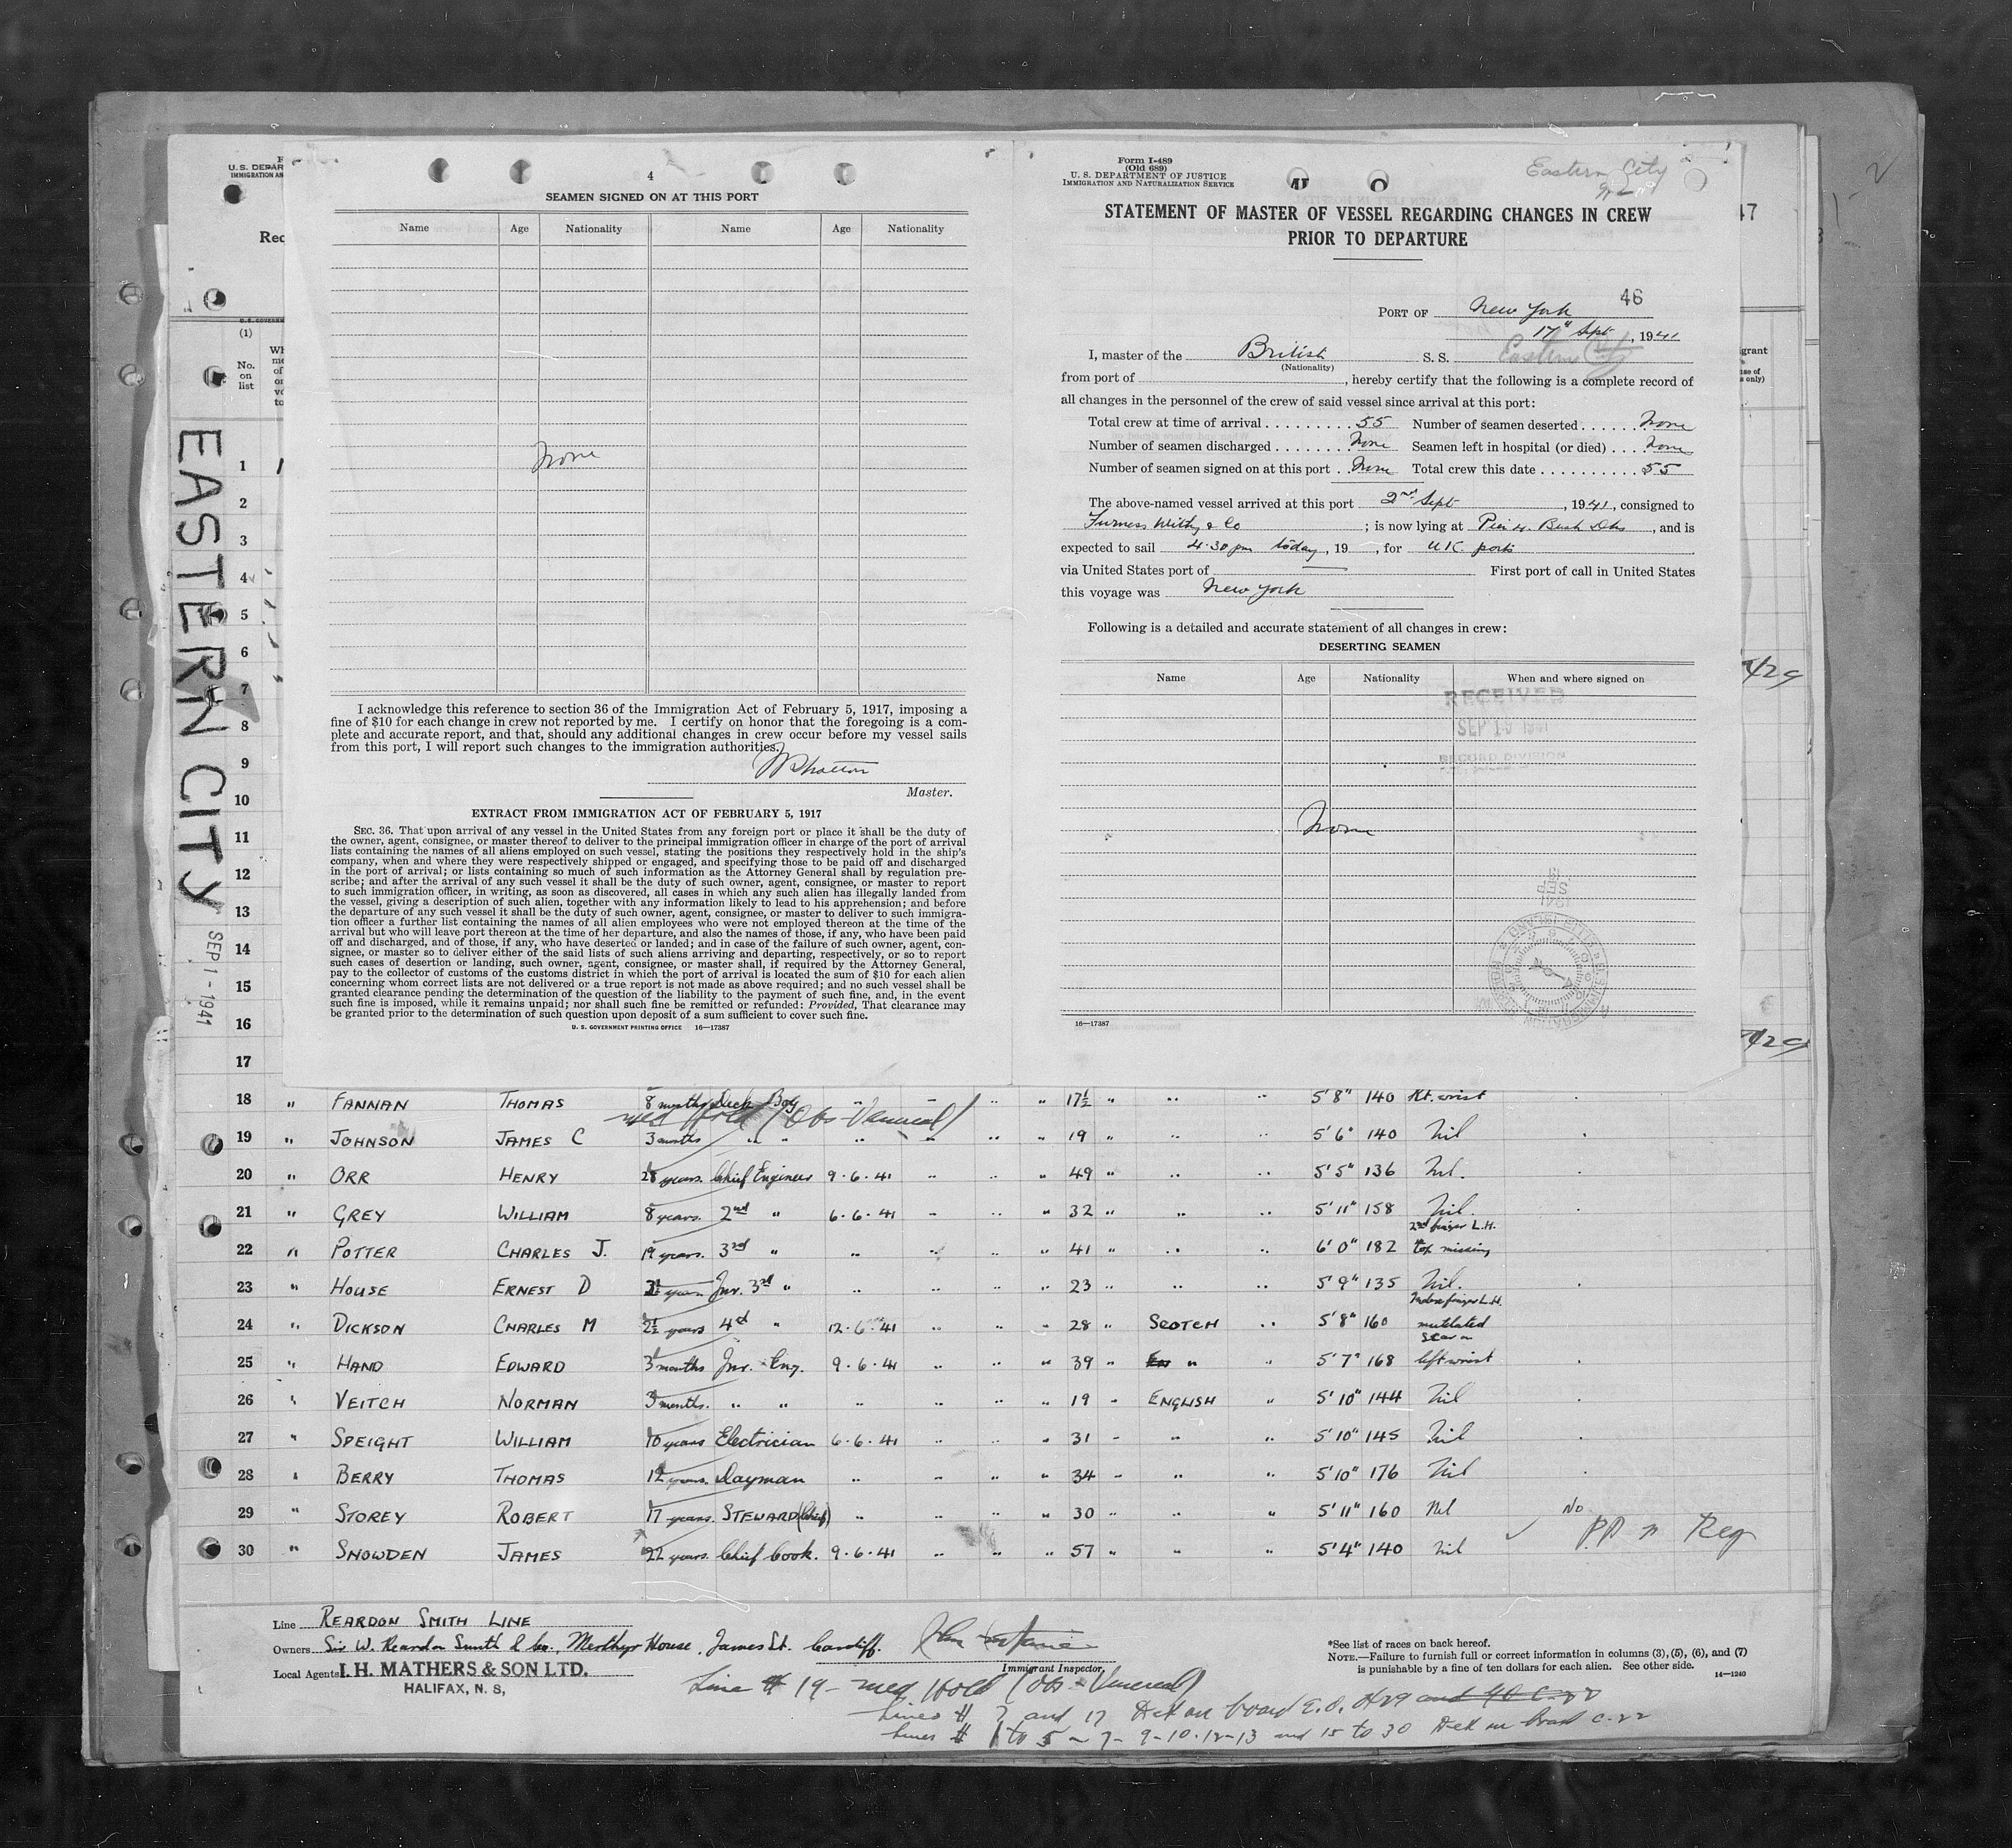 4
SEAMEN SIGNED ON AT THIS PORT
Name Age Nationality Name Age Nationality
None
I acknowledge this reference to section 36 of the Immigration Act of February 5, 1917, imposing a
fine of $10 for each change in crew not reported by me. I certify on honor that the foregoing is a com-
plete and accurate report, and that, should any additional changes in crew occur before my vessel sails
from this port, I will report such changes to the immigration authorities.
Master.
EXTRACT FROM IMMIGRATION ACT OF FEBRUARY 5, 1917
SEC. 36. That upon arrival of any vessel in the United States from any foreign port or place it shall be the duty of
the owner, agent, consignee, or master thereof to deliver to the principal immigration officer in charge of the port of arrival
lists containing the names of all aliens employed on such vessel, stating the positions they respectively hold in the ship's
company, when and where they were respectively shipped or engaged, and specifying those to be paid off and discharged
in the port of arrival; or lists containing so much of such information as the Attorney General shall by regulation pre-
scribe; and after the arrival of any such vessel it shall be the duty of such owner, agent, consignee, or master to report
to such immigration officer, in writing, as soon as discovered, all cases in which any such alien has illegally landed from
the vessel, giving a description of such alien, together with any information likely to lead to his apprehension; and before
the departure of any such vessel it shall be the duty of such owner, agent, consignee, or master to deliver to such immigra-
tion officer a further list containing the names of all alien employees who were not employed thereon at the time of the
arrival but who will leave port thereon at the time of her departure, and also the names of those, if any, who have been paid
off and discharged, and of those, if any, who have deserted or landed; and in case of the failure of such owner, agent, con-
signee, or master so to deliver either of the said lists of such aliens arriving and departing, respectively, or so to report
such cases of desertion or landing, such owner, agent, consignee, or master shall, if required by the Attorney General,
pay to the collector of customs of the customs district in which the port of arrival is located the sum of $10 for each alien
concerning whom correct lists are not delivered or a true report is not made as above required; and no such vessel shall be
granted clearance pending the determination of the question of the liability to the payment of such fine, and, in the event
such fine is imposed, while it remains unpaid; nor shall such fine be remitted or refunded: Provided, That clearance may
be granted prior to the determination of such question upon deposit of a sum sufficient to cover such fine.
U. S. GOVERNMENT PRINTING OFFICE 16—17387
Form I-489
(Old 689)
U. S. DEPARTMENT OF JUSTICE
IMMIGRATION AND NATURALIZATION SERVICE
Eastern City
STATEMENT OF MASTER OF VESSEL REGARDING CHANGES IN CREW
PRIOR TO DEPARTURE
46
PORT OF New York
17" Sept, 1941
I, master of the British S. S. Eastern City
(Nationality)
from port of , hereby certify that the following is a complete record of
all changes in the personnel of the crew of said vessel since arrival at this port:
Total crew at time of arrival 55 Number of seamen deserted None
Number of seamen discharged None Seamen left in hospital (or died) None
Number of seamen signed on at this port None Total crew this date 55
The above-named vessel arrived at this port 2nd Sept, 1941, consigned to
Furness Withy & Co ; is now lying at Pier 4. Bush Dks, and is
expected to sail 4.30 pm today, 19 , for UK ports
via United States port of First port of call in United States
this voyage was New York
Following is a detailed and accurate statement of all changes in crew:
DESERTING SEAMEN
Name Age Nationality When and where signed on
RECEIVED
RECORD DIVISION
None
16—17387
47
EASTERN CITY
SEP 1 - 1941
(1)
No.
on
list
1
2
3
4
5
6
7
8
9
10
11
12
13
14
15
16
17
18 " FANNAN THOMAS 8 months Deck Boy " " " " 17½ " " " 5'8" 140 Rt. wrist
med Hold (Obs-Venereal)
19 " JOHNSON JAMES C 3 months " " " " " " 19 " " " 5'6" 140 Nil
20 " ORR HENRY 28 years. Chief Engineer 9.6.41 " " " 49 " " " 5'5" 136 Nil.
21 " GREY WILLIAM 8 years. 2nd " 6.6.41 " " " 32 " " " 5'11" 158 Nil.
22 " POTTER CHARLES J. 19 years. 3rd " " " " " 41 " " " 6'0" 182 2nd finger L.H. top missing
23 " HOUSE ERNEST D 3½ years Jnr. 3rd " " " " " 23 " " " 5'9" 135 Nil.
24 " DICKSON CHARLES M 2½ years 4th " 12.6.41 " " " 28 " SCOTCH " 5'8" 160 Index finger L.H. mutilated
25 " HAND EDWARD 3 months Jnr. Eng. 9.6.41 " " " 39 " " " 5'7" 168 Scar on left wrist
26 " VEITCH NORMAN 3 months. " " " " " " 19 " ENGLISH " 5'10" 144 Nil
27 " SPEIGHT WILLIAM 10 years Electrician 6.6.41 " " " 31 " " " 5'10" 145 Nil
28 " BERRY THOMAS 12 years. Dayman " " " " 34 " " " 5'10" 176 Nil
29 " STOREY ROBERT 17 years. STEWARD (Chief) " " " " 30 " " " 5'11" 160 Nil No
30 " SNOWDEN JAMES 22 years. Chief Cook. 9.6.41 " " " 57 " " " 5'4" 140 Nil PP n Reg
Line REARDON SMITH LINE
Owners Sir W. Reardon Smith & Co., Merthyr House, James St. Cardiff.
Immigrant Inspector.
Local Agents I. H. MATHERS & SON LTD.
HALIFAX, N. S,
*See list of races on back hereof.
NOTE.—Failure to furnish full or correct information in columns (3), (5), (6), and (7)
is punishable by a fine of ten dollars for each alien. See other side.
14—1240
Line # 19 - med Hold (Obs - Venereal)
Lines # 7 and 17 Det on board E.O. 8429 and 40 C-22
Lines # 1 to 5 - 7 - 9-10-12-13 and 15 to 30 Det on board C-22